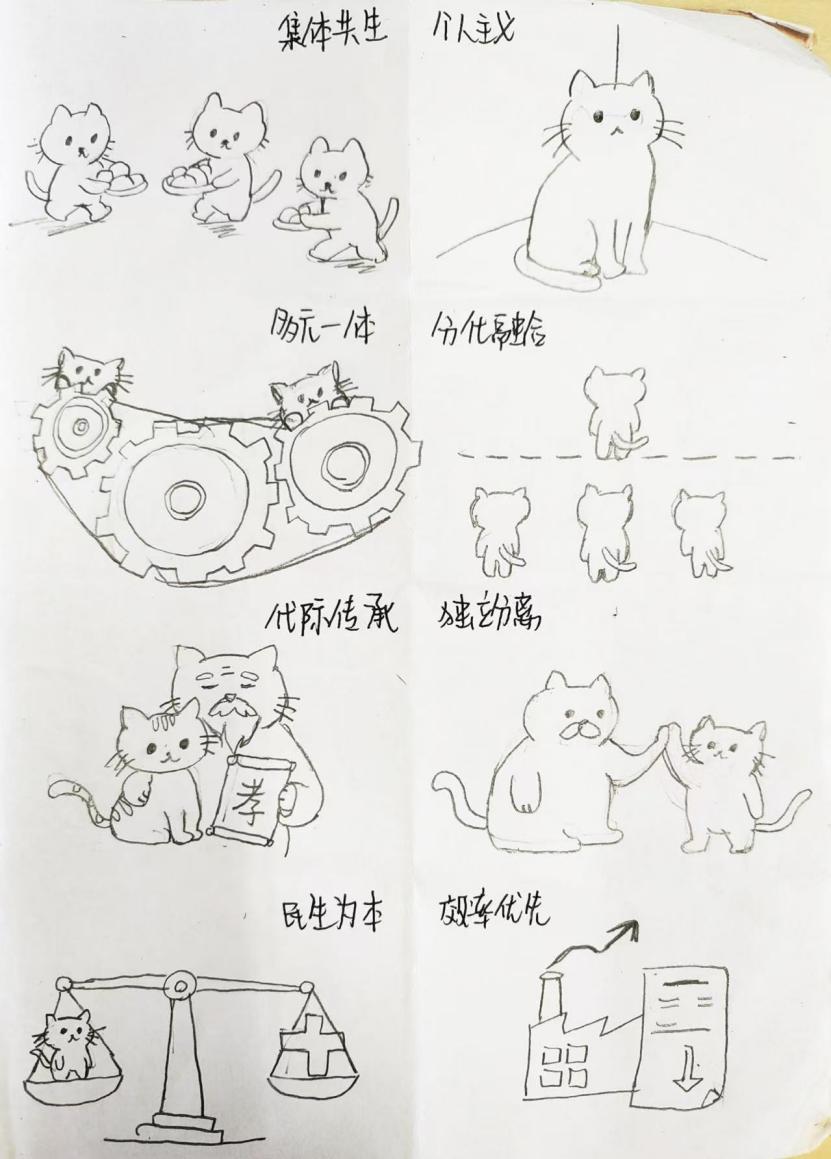 集体共生
个人主义
多元一体
分化融合
代际传承
独立分离
孝
民生为本
效率优先